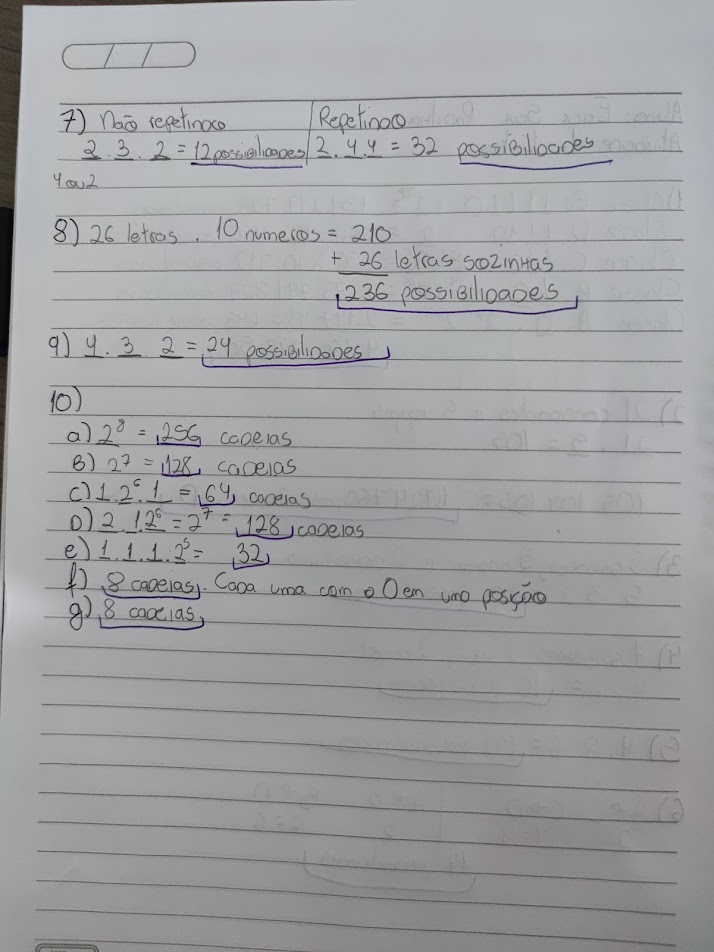 7) Não repetindo
Repetindo
2 . 3 . 2 = 12 possibilidades
2 . 4 . 4 = 32 possibilidades
4 ou 2
8) 26 letras . 10 numeros = 210
+ 26 letras sozinhas
236 possibilidades
9) 4 . 3 2 = 24 possibilidades
10)
a) 2⁸ = 256 cadeias
B) 2⁷ = 128 cadeias
c) 1 . 2⁶ . 1 = 64 cadeias
D) 2 . 1 . 2⁶ = 2⁷ = 128 cadeias
e) 1 . 1 . 1 . 2⁵ = 32
f) 8 cadeias. Cada uma com o 0 em uma posição
g) 8 cadeias